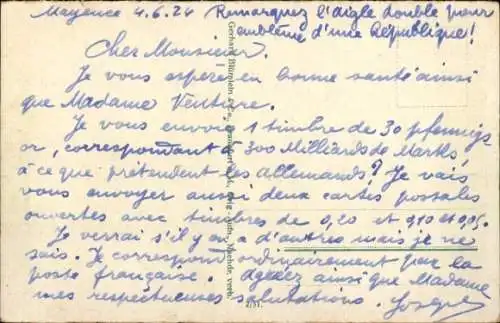 Mayence 4.6.24 Remarquez l'aigle double pour
emblème d'une République!
Cher Monsieur.
Je vous espère en bonne santé ainsi
que Madame Venture.
Je vous envoie 1 timbre de 30 pfennigs-
or, correspondant à 300 Milliards de Marks,
à ce que prétendent les allemands? Je vais
vous envoyer aussi deux cartes postales
ouvertes avec timbres de 0,20 et 0,10 et 0,05.
Je verrai s'il y en a d'autres mais je ne
sais. Je correspond ordinairement par la
poste française. Agréez ainsi que Madame
mes respectueuses salutations. Joseph
Gerhard Blümlein &
verb.
2/31.